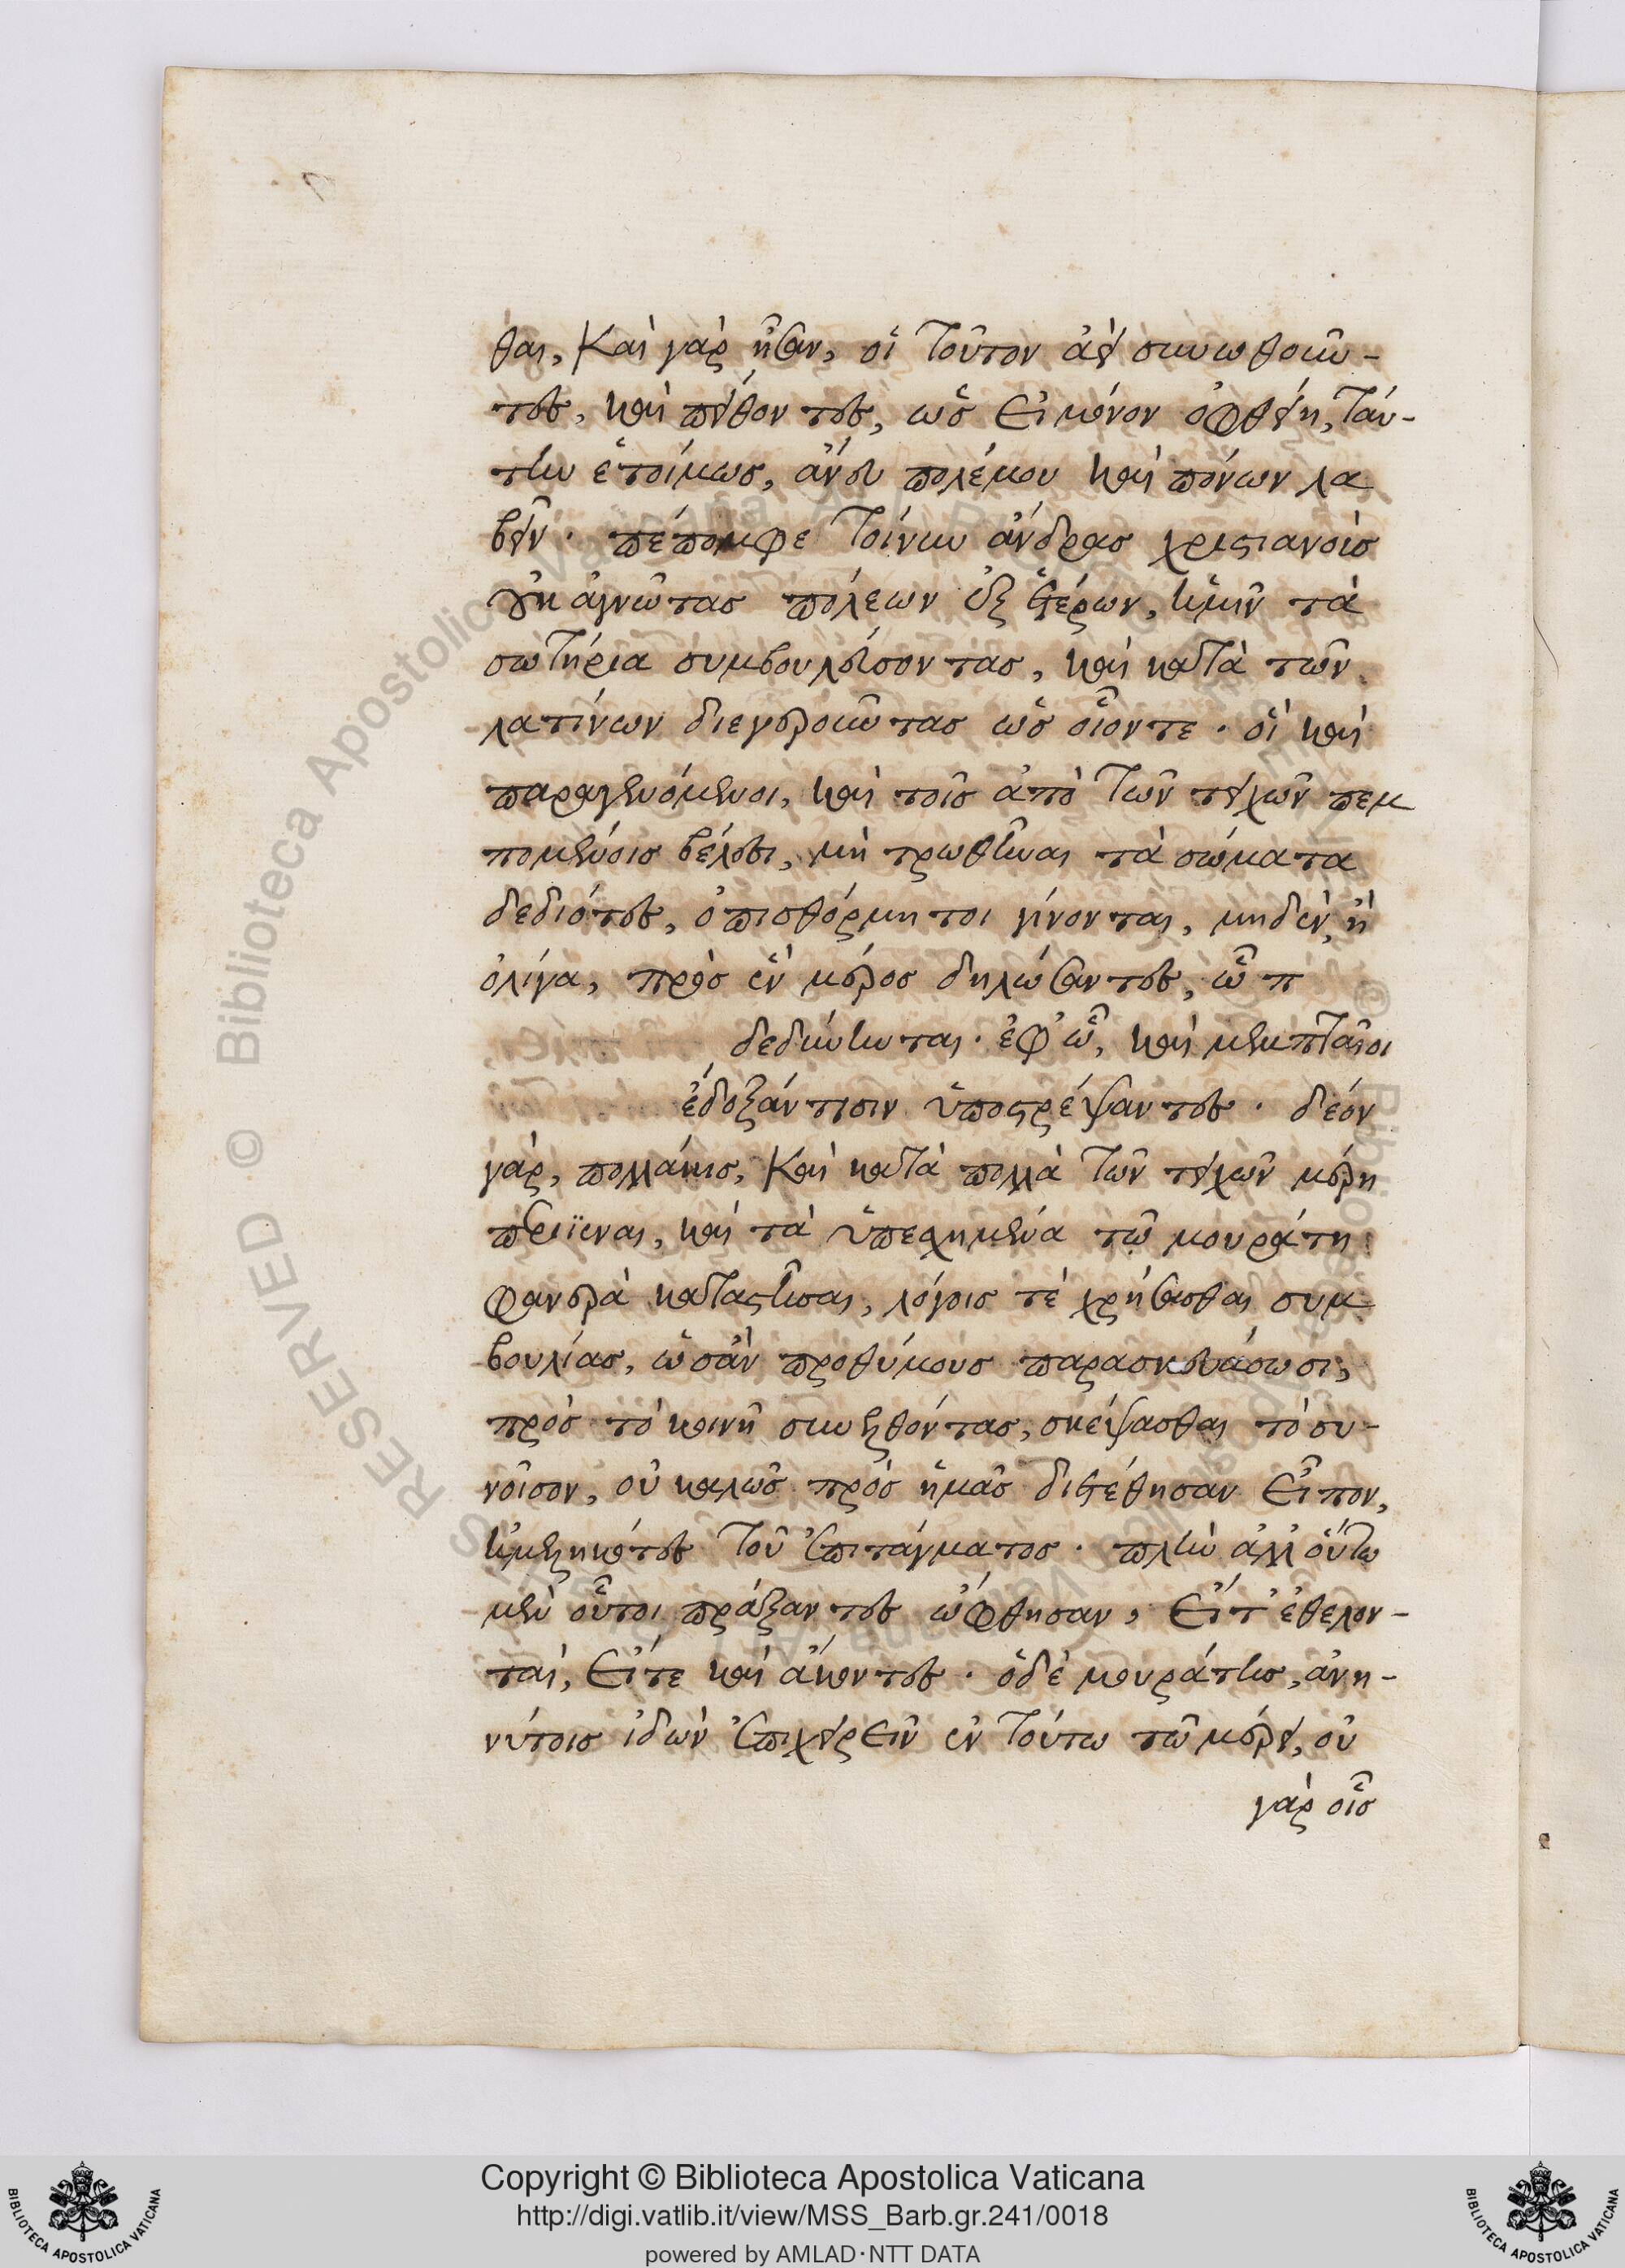 θαι, Καὶ γὰρ ἦσαν, οἳ τοῦτον ἀεὶ συνωθοῦν-
τες, καὶ πείθοντες, ὡς εἰ μόνον ὀφθείη, ταύ-
την ἑτοίμως, ἄνευ πολέμου καὶ πόνων λα
βεῖν. πέπομφε τοίνυν ἄνδρας χριστιανοὺς
οὐκ ἀγνῶτας πόλεων ἐξ ἑτέρων, ἡμῖν τὰ
σωτήρια συμβουλεύσοντας, καὶ κατὰ τῶν
λατίνων διεγεροῦντας ὡς οἷόντε. οἳ καὶ
παραγενόμενοι, καὶ τοῖς ἀπὸ τῶν τειχῶν πεμ
πομένοις βέλεσι, μὴ τρωθῆναι τὰ σώματα
δεδιότες, ὀπισθόρμητοι γίνονται, μηδὲν, ἢ
ὀλίγα, πρὸς ἓν μέρος δηλώσαντες, ὧ π
δεδύνηται. ἐφ' ᾧ, καὶ μεμπταῖοι
ἐδοξάν τισιν ὑποστρέψαντες. δέον
γὰρ, πολλάκις, καὶ κατὰ πολλὰ τῶν τειχῶν μέρη
περιϊέναι, καὶ τὰ ὑπεσχημένα τῷ μουράτη
φανερὰ καταστῆσαι, λόγοις τὲ χρήσασθαι συμ
βουλίας, ὡσὰν προθύμους παρασκευάσωσι,
πρὸς τὸ κοινῆ συνελθόντας, σκέψασθαι τὸ συ-
νοῖσον, οὐ καλῶς πρὸς ἡμᾶς διετέθησαν εἶπον,
ἠμεληκότες τοῦ ἐπιτάγματος. πλὴν ἀλλ οὕτω
μὲν οὗτοι πράξαντες ὤφθησαν, εἴτ' ἐθελον-
ταὶ, εἴτε καὶ ἄκοντες. ὁδὲ μουράτης, ἀνη-
νύτοις ἰδὼν ἐπιχειρεῖν ἐν τούτω τῶ μέρει, οὐ
γὰρ οἷς
Copyright © Biblioteca Apostolica Vaticana
http://digi.vatlib.it/view/MSS_Barb.gr.241/0018
powered by AMLAD·NTT DATA
BIBLIOTECA APOSTOLICA VATICANA
BIBLIOTECA APOSTOLICA VATICANA